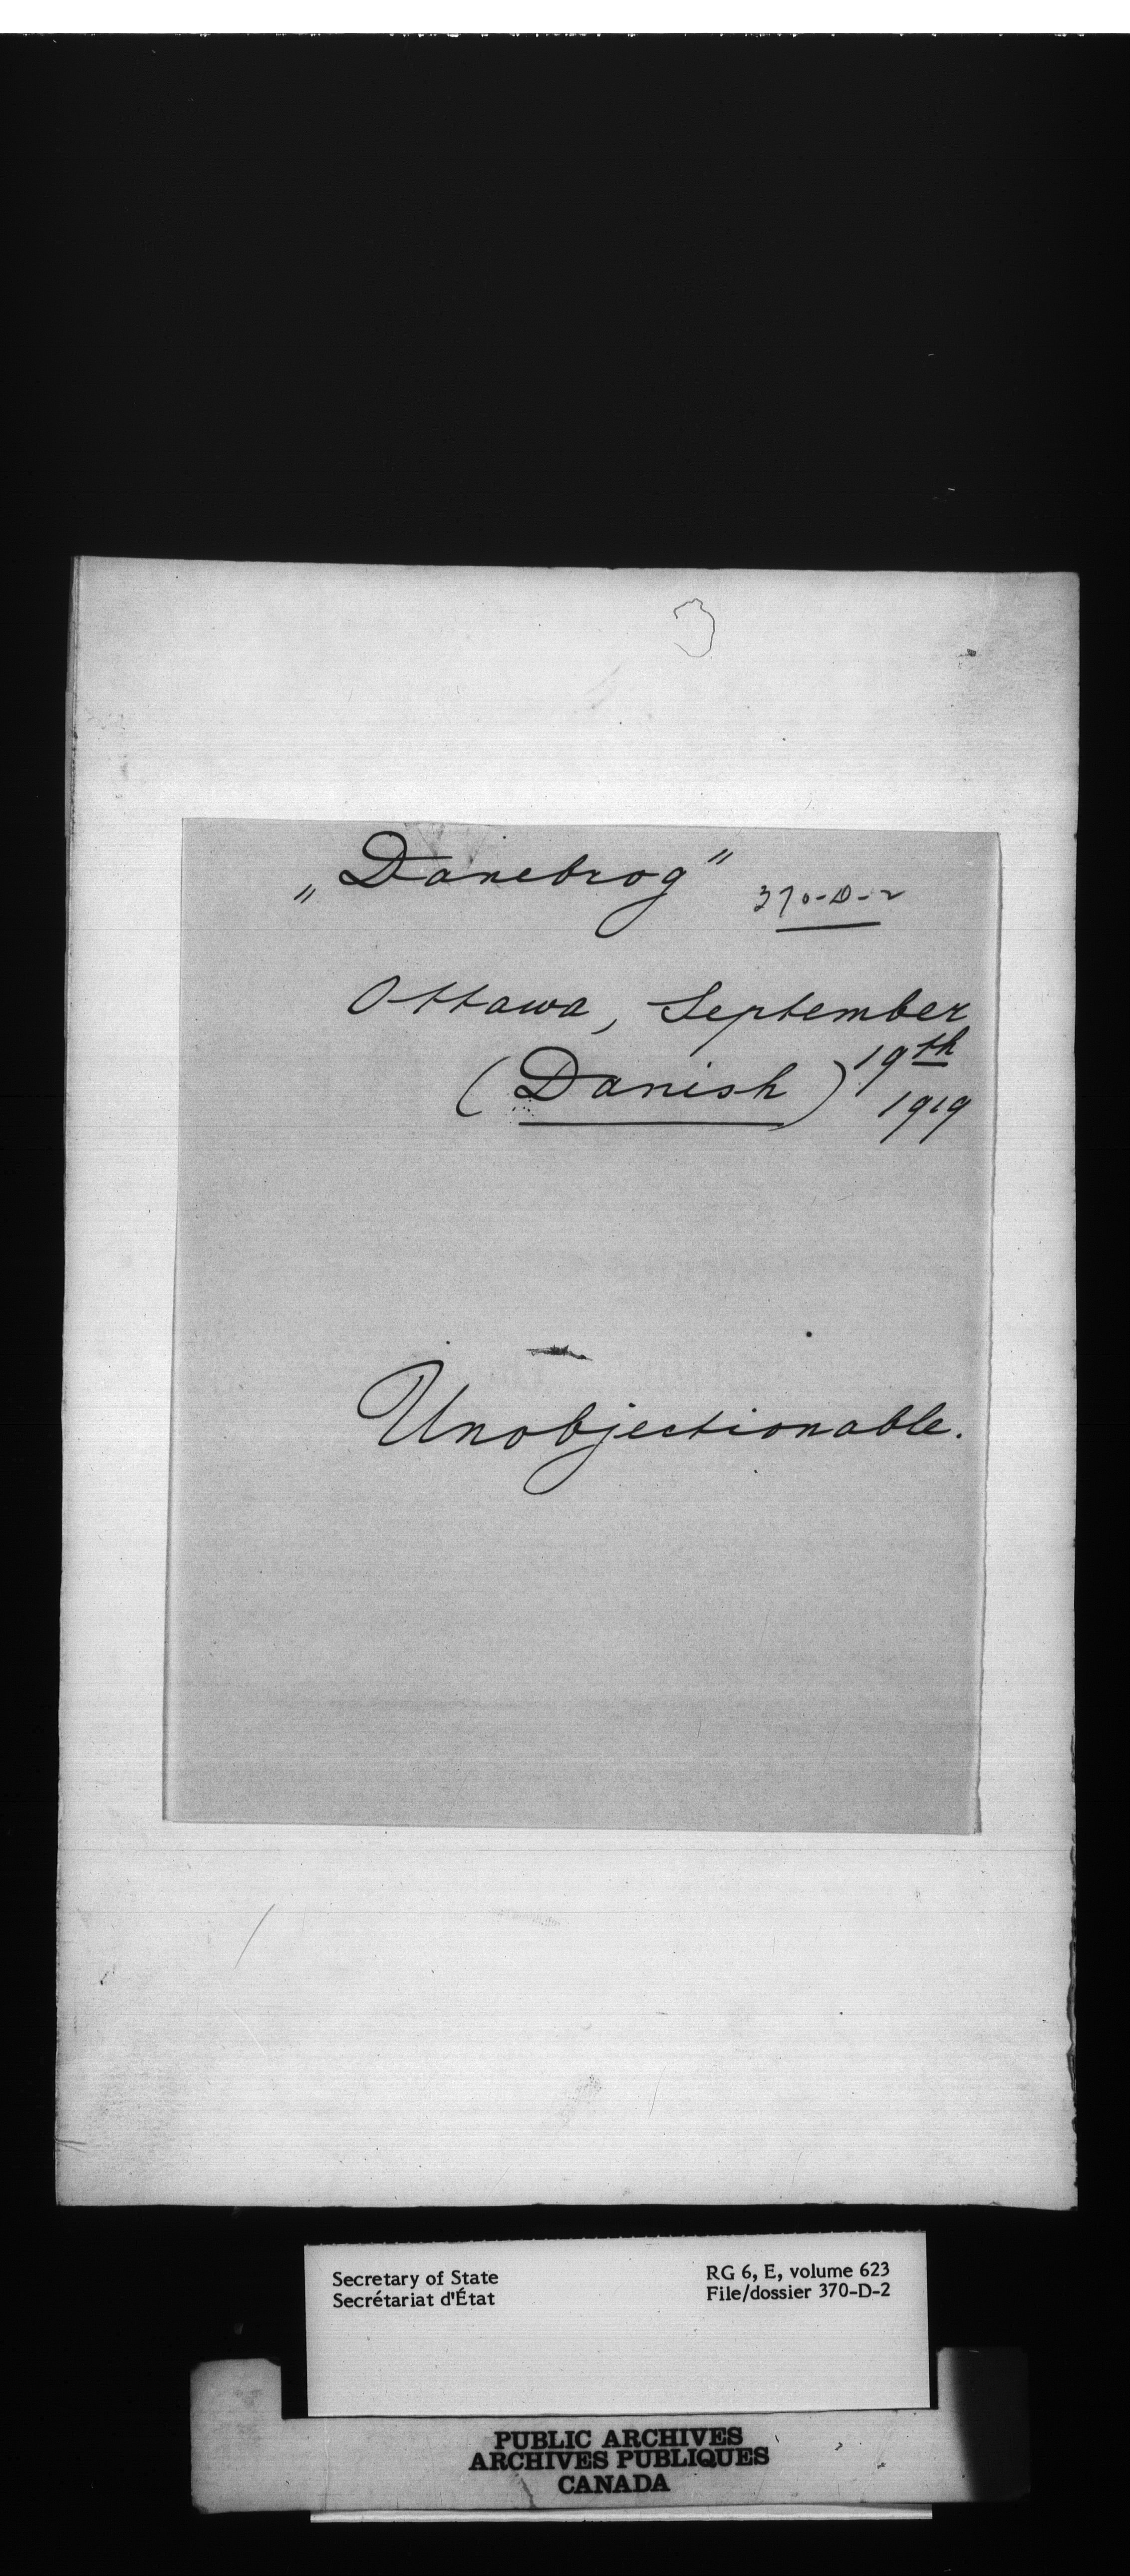 3
„Danebrog” 370-D-2
Ottawa, September
19th
(Danish) 1919
Unobjectionable.
Secretary of State
Secrétariat d'État
RG 6, E, volume 623
File/dossier 370-D-2
PUBLIC ARCHIVES
ARCHIVES PUBLIQUES
CANADA